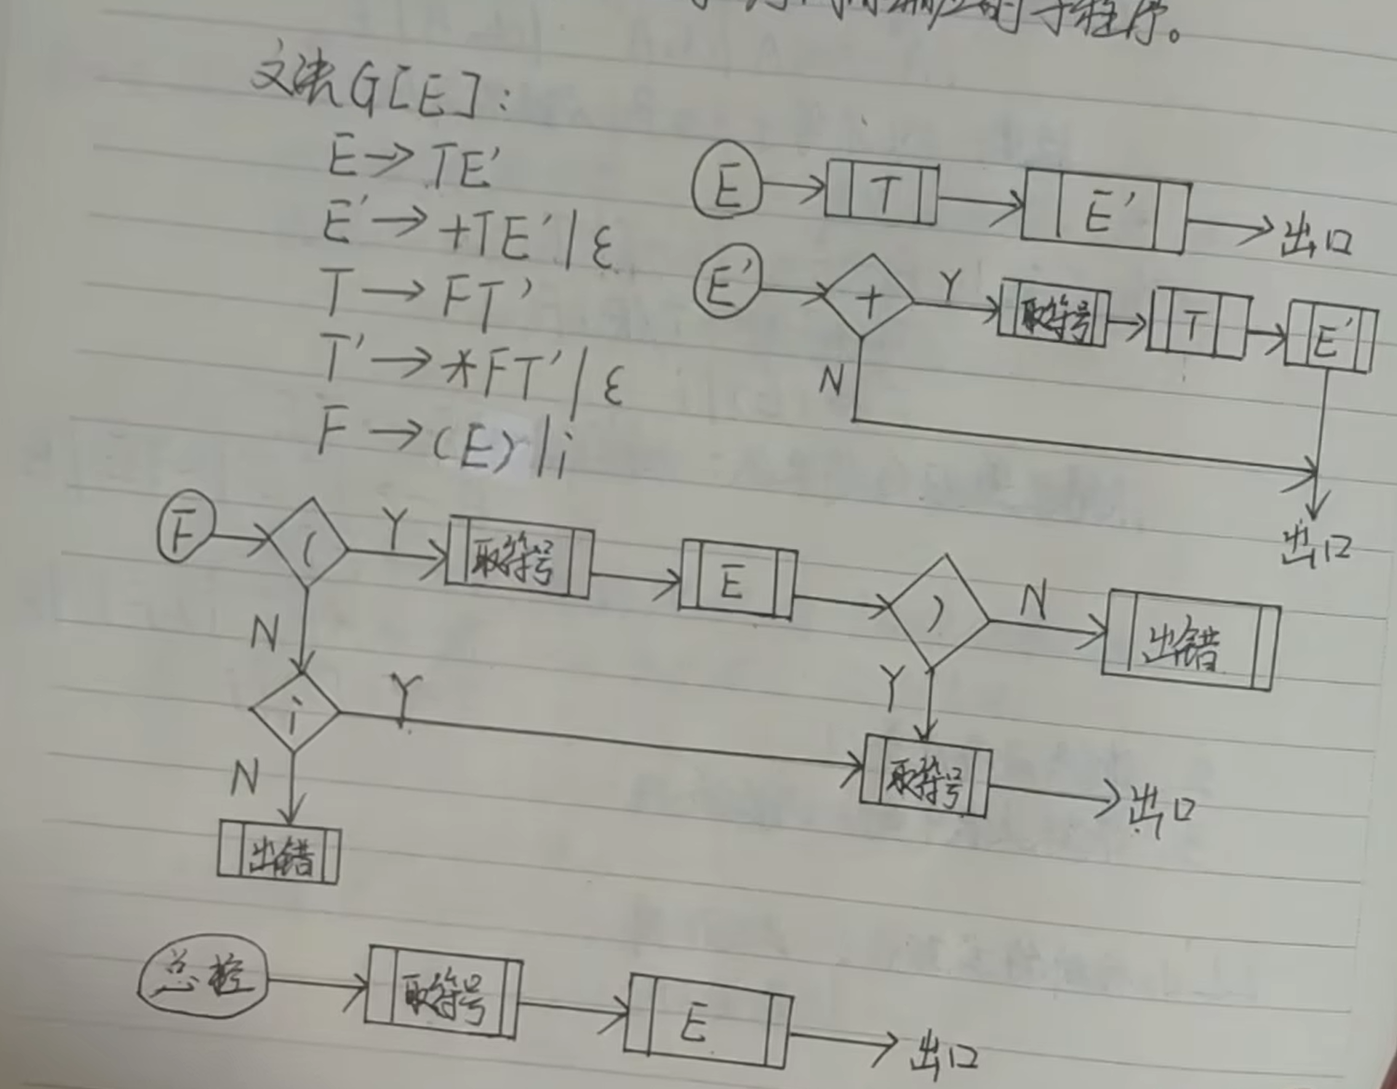 子程序。
文法G[E]:
E→TE'
E'→+TE'|ε
T→FT'
T'→*FT'|ε
F→(E)|i
E T E' 出口
E' + Y 取符号 T E'
N
出口
F ( Y 取符号 E ) N 出错
N Y
i Y 取符号 出口
N
出错
总控 取符号 E 出口